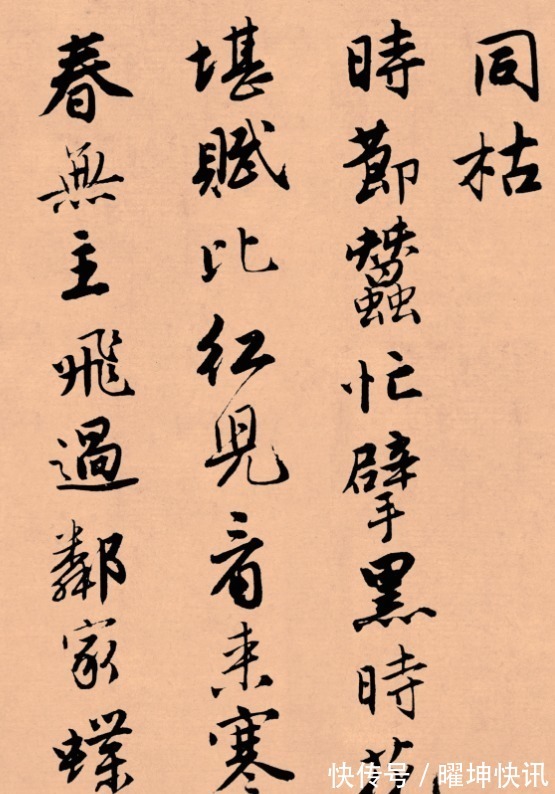 同枯
時節蠶忙擘黑時
堪賦比紅兒看来寒
春無主飛過鄰家蝶
快传号/曜坤快讯